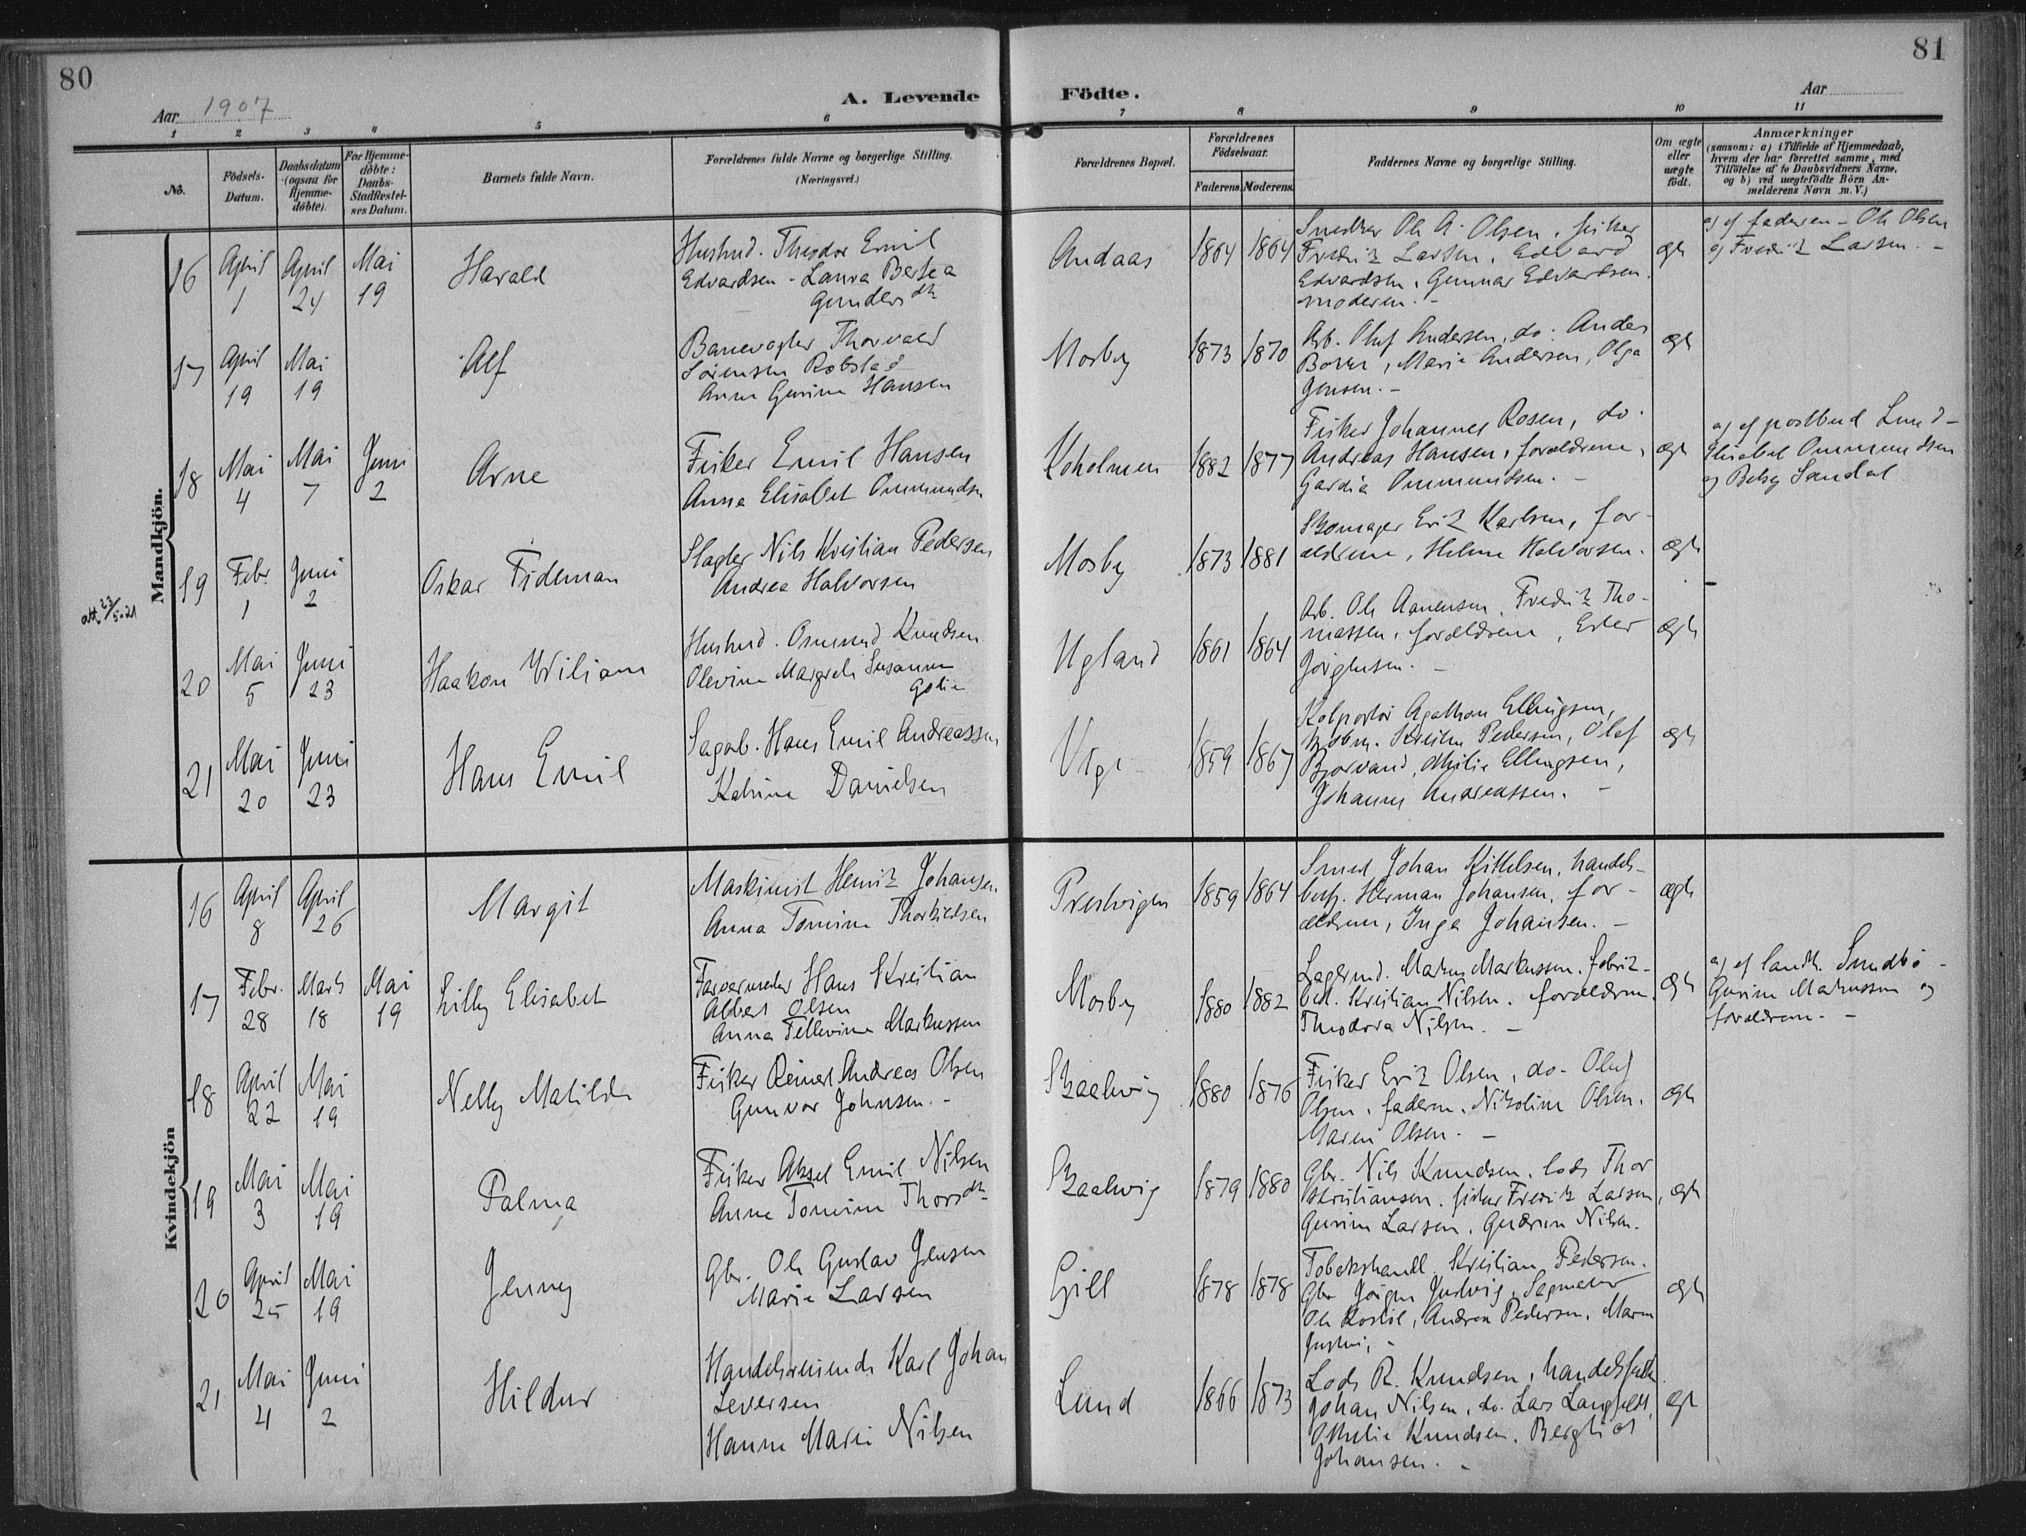 80
81
Aar 1907
A. Levende Födte.
Aar
1 2 3 4 5 6 7 8 9 10 11
No.
Födsels-Datum.
Daabsdatum (ogsaa for Hjemme-döbte).
For Hjemme-döbte: Daabs-Stadfæstel-ses Datum.
Barnets fulde Navn.
Forældrenes fulde Navne og borgerlige Stilling.
(Næringsvei.)
Forældrenes Bopæl.
Forældrenes Födselsaar.
Faderens. Moderens.
Faddernes Navne og borgerlige Stilling.
Om ægte eller uægte födt.
Anmærkninger
(saasom: a) i Tilfælde af Hjemmedaab,
hvem der har forrettet samme, med
Tilföielse af to Daabsvidners Navne,
og b) ved uægtefödte Börn An-
melderens Navn m. V.)
Mandkjön.
16 April 1 April 24 Mai 19 Harald
Husmd. Theodor Emil
Edvardsen - Laura Bertea
Gundersdtr
Andaas 1864 1864
Snedker Ole A. Olsen, fisker
Fredrik Larsen, Edvard
Edvardsen, Gunnar Edvardsen
moderen. -
ægte
a) af faderen - Ole Olsen
og Fredrik Larsen. -
17 April 19 Mai 19 Alf
Banevogter Thorvald
Sörensen Robstad
Anne Gurine Hansen
Mosby 1873 1870
Arb. Oluf Andersen, do. Anders
Boyer, Marie Andersen, Olga
Jensen. -
ægte
18 Mai 4 Mai 7 Juni 2 Arne
Fisker Emil Hansen
Anna Elisabet Ommundsen
Koholmen 1882 1877
Fisker Johannes Rosen, do.
Andreas Hansen, forældrene,
Gardia Ommundsen. -
ægte
a) af postbud Lund -
Elisabet Ommundsen
og Betsy Sandal
19 Febr. 1 Juni 2 Oskar Fideman
Slagter Nils Kristian Pedersen
Andrea Halvorsen
Mosby 1873 1881
Skomager Erik Karlsen, for-
ældrene, Helene Halvorsen.
ægte
att 23/5-21
20 Mai 5 Juni 23 Haakon Wiliam
Husmd. Osmund Knudsen
Olevine Margrete Susanne
Ugland 1861 1864
Arb. Ole Aanensen, Fredrik Tho-
massen, forældrene, Ester
Jörgensen. -
ægte
21 Mai 20 Juni 23 Hans Emil
Sagarb. Hans Emil Andreassen
Katrine Danielsen
Vige 1859 1867
Kolportör Agathon Ellingsen,
Kristen Pedersen, Olaf
Bjorvand, Otilie Ellingsen,
Johanne Andreassen. -
ægte
Kvindekjön
16 April 8 April 26 Margit
Maskinist Henrik Johansen
Anna Tomine Thorkildsen
Prestvigen 1859 1864
Smed Johan Kittelsen, handels-
betj. Herman Johansen, for-
ældrene, Inga Johansen. -
ægte
17 Febr. 28 Marts 18 Mai 19 Lilly Elisabet
Farvermester Hans Kristian
Albert Olsen
Anna Tellevine Markussen
Mosby 1880 1882
Lagermd. Matias Markussen, fabrik-
best. Kristian Nilsen, forældrene
Theodora Nilsen. -
ægte
a) af landh. Sundbö -
Gurine Markussen og
forældrene. -
18 April 22 Mai 19 Nelly Matilde
Fisker Reinert Andreas Olsen
Gunvor Johnsen. -
Skaalevig 1880 1876
Fisker Erik Olsen, do. Oluf
Olsen, faderen, Nikoline Olsen,
Maren Olsen. -
ægte
19 Mai 3 Mai 19 Palma
Fisker Aksel Emil Nilsen
Anne Tomine Thorsdtr
Skaalevig 1879 1880
Gbr. Nils Knudsen, lods Thor
Kristiansen, fisker Fredrik Larsen,
Gurine Larsen, Gudrun Nilsen.
ægte
20 April 25 Mai 19 Jenny
Gbr. Ole Gustav Jensen
Marie Larsen
Gill 1878 1878
Tobakshandl. Kristian Pedersen.
Gbr Jörgen Justvig, Sagmester
Ole Kostöl, Andrea Pedersen, Maren
Justvig. -
ægte
21 Mai 4 Juni 2 Hildur
Handelsreisende Karl Johan
Seversen
Hanne Marie Nilsen
Lund 1866 1873
Lods R. Knudsen, handelsfuldm.
Johan Nilsen, do. Lars Langfeldt,
Othelie Knudsen, Bergliot
Johansen. -
ægte